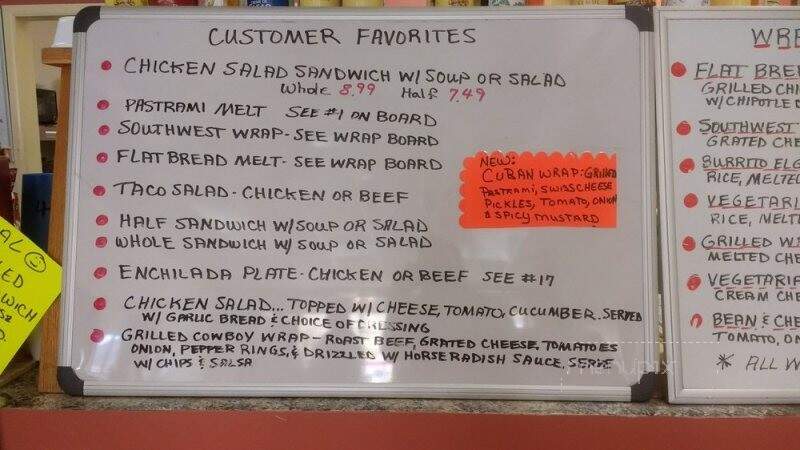 CUSTOMER FAVORITES
CHICKEN SALAD SANDWICH W/ SOUP OR SALAD
Whole 8.99 Half 7.49
PASTRAMI MELT SEE #1 ON BOARD
SOUTHWEST WRAP - SEE WRAP BOARD
FLAT BREAD MELT - SEE WRAP BOARD
TACO SALAD - CHICKEN OR BEEF
HALF SANDWICH W/ SOUP OR SALAD
WHOLE SANDWICH W/ SOUP OR SALAD
ENCHILADA PLATE - CHICKEN OR BEEF SEE #17
CHICKEN SALAD... TOPPED W/ CHEESE, TOMATO, CUCUMBER. SERVED
W/ GARLIC BREAD & CHOICE OF DRESSING
GRILLED COWBOY WRAP - ROAST BEEF, GRATED CHEESE, TOMATOES
ONION, PEPPER RINGS, & DRIZZLED W/ HORSERADISH SAUCE, SERVE
W/ CHIPS & SALSA
NEW:
CUBAN WRAP: GRILLED
PASTRAMI, SWISS CHEESE
PICKLES, TOMATO, ONION
& SPICY MUSTARD
WR
FLAT BRE
GRILLED CHI
W/ CHIPOTLE
SOUTHWEST
GRATED CHE
BURRITO EL
RICE, MELTE
VEGETARI
RICE, MELT
GRILLED
MELTED CHE
VEGETARIA
CREAM CHE
BEAN & CHE
TOMATO, ON
* ALL W
menupix